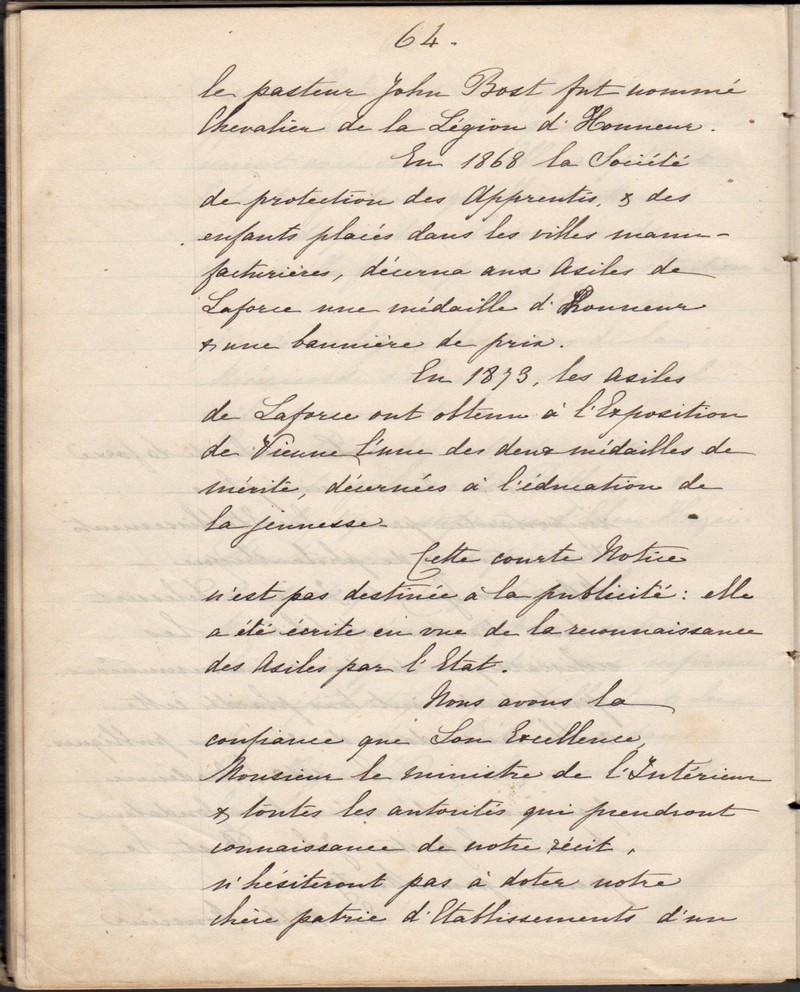 64.
le pasteur John Bost fut nommé
Chevalier de la Légion d'Honneur.
En 1868 la Société
de protection des Apprentis, & des
enfants placés dans les villes manu-
facturières, décerna aux Asiles de
Laforce une médaille d'Honneur
& une bannière de prix.
En 1873, les Asiles
de Laforce ont obtenu à l'Exposition
de Vienne l'une des deux médailles de
mérite, décernées à l'éducation de
la jeunesse.
Cette courte Notice
n'est pas destinée à la publicité : elle
a été écrite en vue de la reconnaissance
des Asiles par l'Etat.
Nous avons la
confiance que Son Excellence,
Monsieur le ministre de l'Intérieur
& toutes les autorités qui prendront
connaissance de notre récit,
n'hésiteront pas à doter notre
chère patrie d'Etablissements d'un